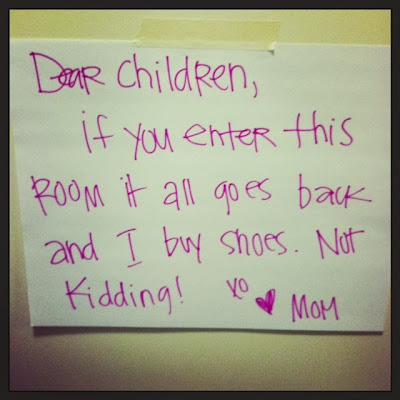 Dear Children,
if you enter this
room it all goes back
and I buy shoes. Not
Kidding! xo
♥ Mom